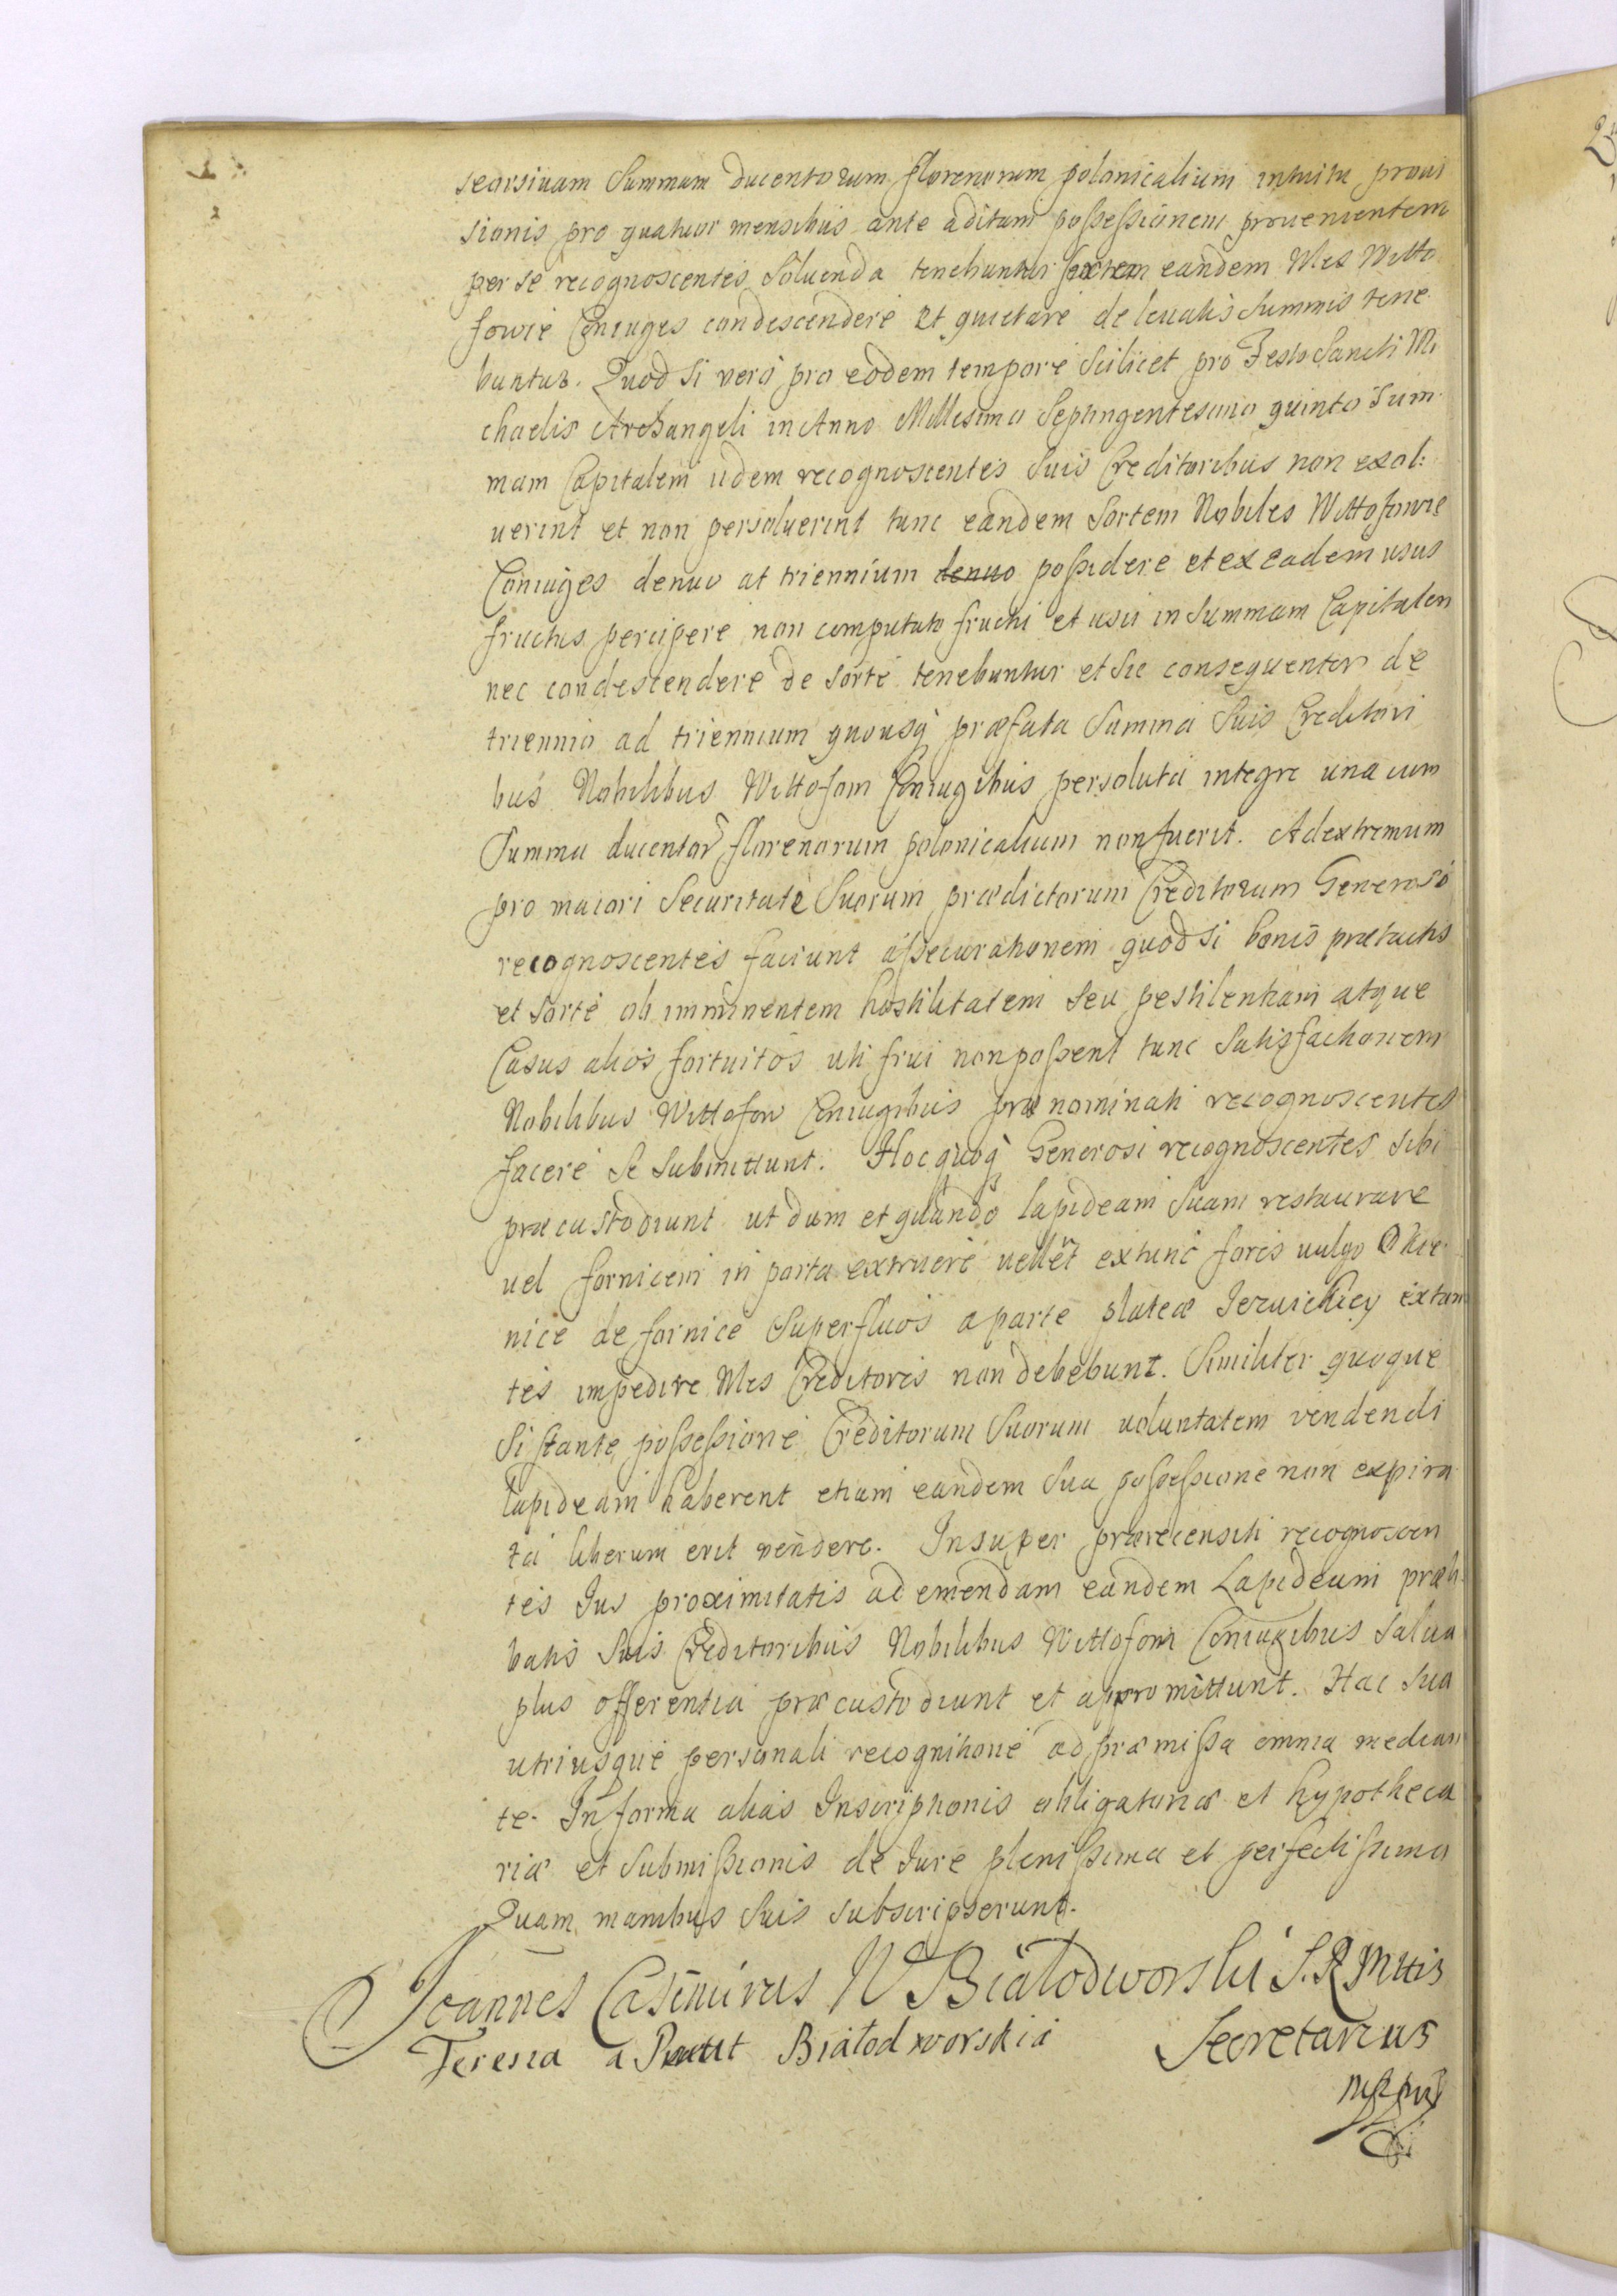 seorsivam Summam ducentorum florenorum polonicalium intuitu provi
sionis pro quatuor mensibus ante aditam possessionem provenientem
per se recognoscentes Solvenda tenebuntur sortem eandem Nles Witto
fowie Coniuges condescendere Et quietare de levatis Summis tene
buntur. Quod Si vero pro eodem tempore Scilicet pro Festo Sancti Mi
chaelis Archangeli in Anno Millesimo Septingentesimo quinto Sum
mam Capitalem iidem recognoscentes Suis Creditoribus non exol:
verint et non persolverint tunc eandem Sortem Nobiles Wittofowie
Coniuges denuo at triennium denuo possidere et ex eadem usus
fructus percipere non computato fructu et usu in Summam Capitalem
nec condescendere de Sorte tenebuntur et Sic consequenter de
triennio ad triennium quousq præfata Summa Suis Creditori
bus Nobilibus Wittofom Coniugibus persoluta integre una cum
Summa ducentor florenorum polonicalium non fuerit. Ad extremum
pro maiori Securitate Suorum prædictorum Creditorum Generosi
recognoscentes faciunt assecurationem quod Si bonis prætactis
et Sorte ob imminentem hostilitatem Seu pestilentiam atque
Casus alios fortuitos uti frui non possent tunc Satisfactionem
Nobilibus Wittofow Coniugibus prænominati recognoscentes
facere Se Submittunt. Hoc quoq Generosi recognoscentes Sibi
præcustodiunt ut dum et quando lapideam Suam restaurare
vel fornicem in porta extruere vellent extunc foris vulgo Okie
nice de fornice Superfluos a parte plateæ Jezuickiey extan
tes impedire Nles Creditores non debebunt. Similiter quoque
Si stante possessione Creditorum Suorum voluntatem vendendi
lapideam haberent etiam eandem Sua possessione non expira
ta liberum erit vendere. Insuper prærecensiti recognoscen
tes Jus proximitatis ad emendam eandem Lapideam præli
batis Suis Creditoribus Nobilibus Wittofom Coniugibus Salva
plus offerentia præcustodiunt et appromittunt. Hac Sua
utriusque personali recognitione ad præmissa omnia median
te. In forma alias Inscriptionis obligatoriæ et hypotheca
riæ et Submissionis de Jure plenissima et perfectissima
Quam manibus Suis Subscripserunt.
Joannes Casimirus N Białodworski S. R Mttis
Teresia a Białodworskia Secretarius
mppria